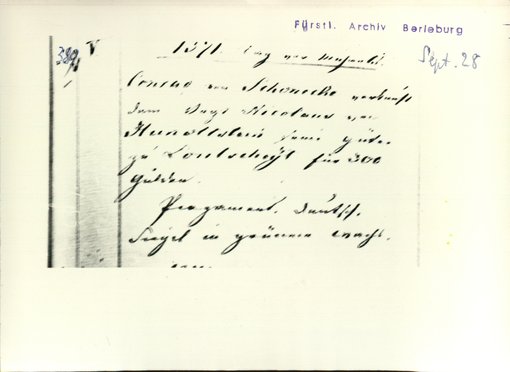 Fürstl. Archiv Berleburg
Sept. 28
1371. Tag vor Michaelis.
Conrad von Schonecke verkauft
dem Vogt Nicolaus von
Hunoltstein seine Güter
zu Loutscheyt für 300
Gulden.
Pergament. Deutsch.
Siegel in grünem Wachs.